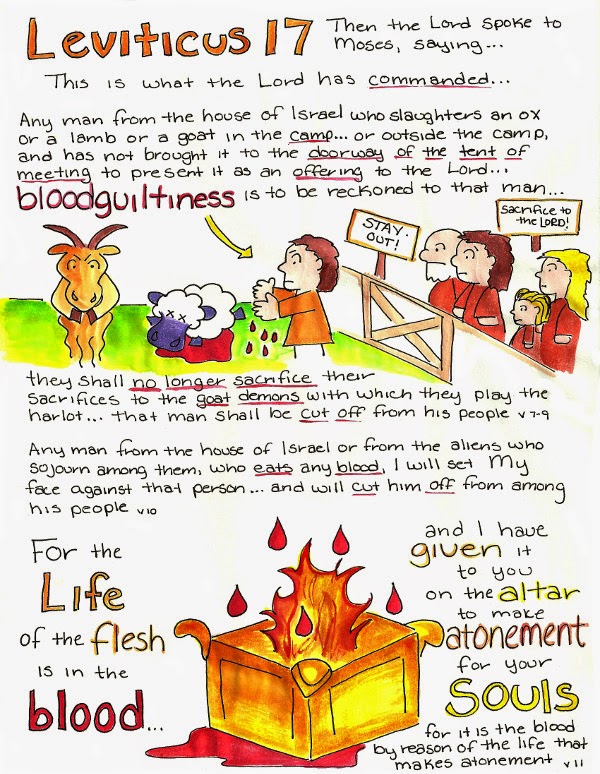 Leviticus 17
Then the Lord spoke to
Moses, saying...
This is what the Lord has commanded...
Any man from the house of Israel who slaughters an ox
or a lamb or a goat in the camp... or outside the camp,
and has not brought it to the doorway of the tent of
meeting to present it as an offering to the Lord...
bloodguiltiness is to be reckoned to that man...
STAY
OUT!
Sacrifice to
the LORD!
they shall no longer sacrifice their
sacrifices to the goat demons with which they play the
harlot... that man shall be cut off from his people v 7-9
Any man from the house of Israel or from the aliens who
sojourn among them, who eats any blood, I will set My
face against that person... and will cut him off from among
his people v10
For the
Life
of the flesh
is in the
blood...
and I have
given it
to you
on the altar
to make
atonement
for your
Souls
for it is the blood
by reason of the life that
makes atonement v11